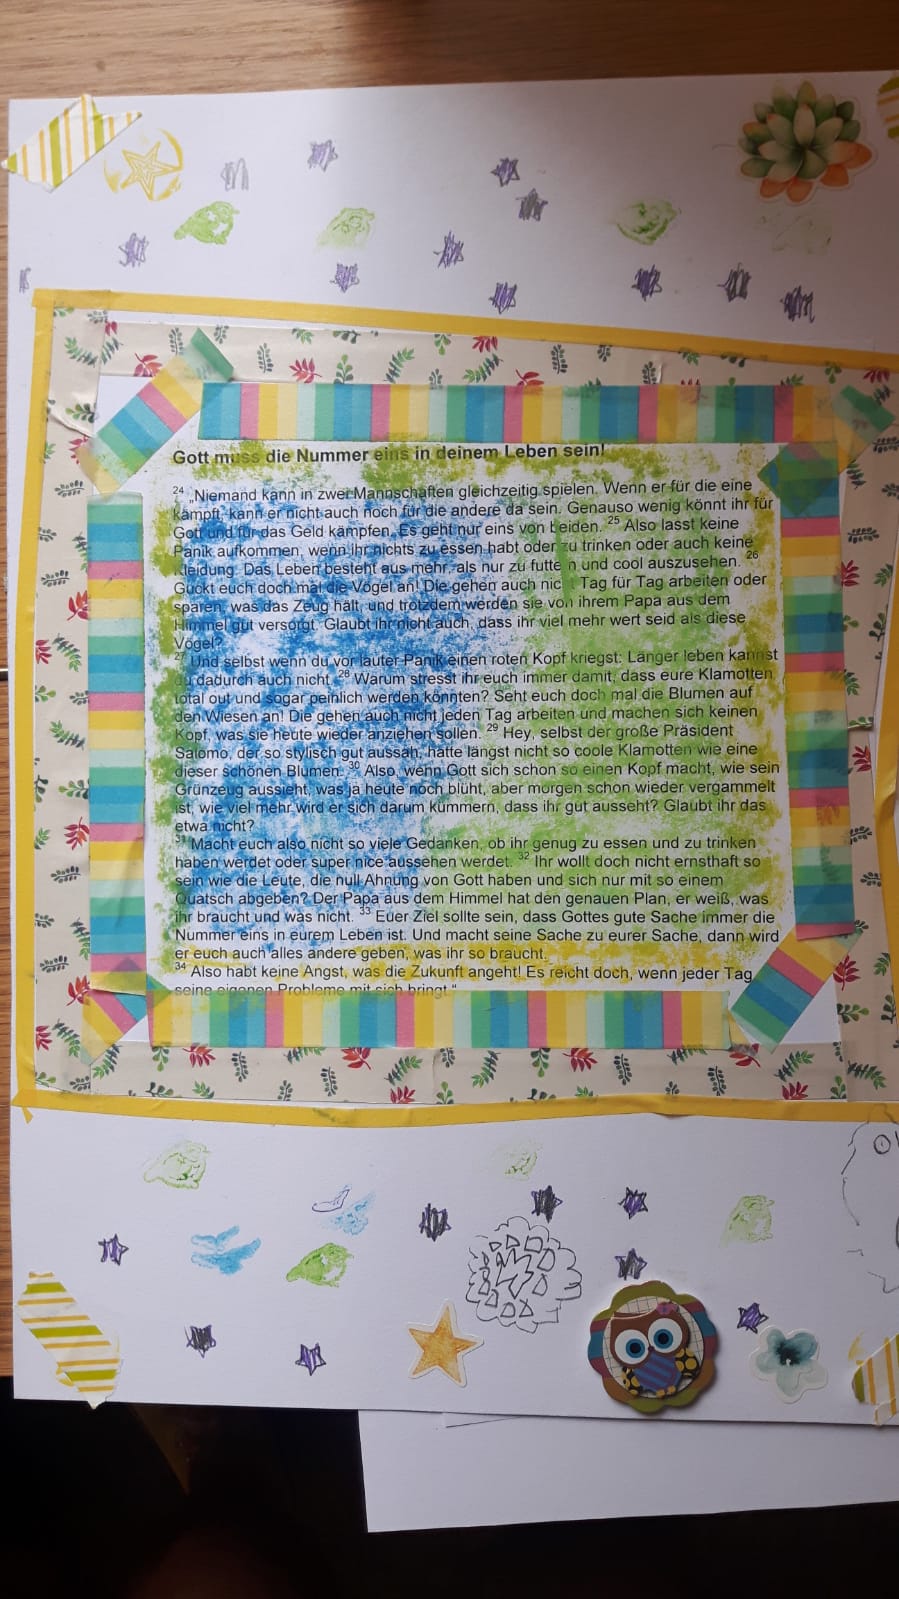 Gott muss die Nummer eins in deinem Leben sein!
24 „Niemand kann in zwei Mannschaften gleichzeitig spielen. Wenn er für die eine
kämpft, kann er nicht auch noch für die andere da sein. Genauso wenig könnt ihr für
Gott und für das Geld kämpfen. Es geht nur eins von beiden. 25 Also lasst keine
Panik aufkommen, wenn ihr nichts zu essen habt oder zu trinken oder auch keine
Kleidung. Das Leben besteht aus mehr, als nur zu futtern und cool auszusehen. 26
Guckt euch doch mal die Vögel an! Die gehen auch nicht Tag für Tag arbeiten oder
sparen, was das Zeug hält, und trotzdem werden sie von ihrem Papa aus dem
Himmel gut versorgt. Glaubt ihr nicht auch, dass ihr viel mehr wert seid als diese
Vögel?
27 Und selbst wenn du vor lauter Panik einen roten Kopf kriegst: Länger leben kannst
du dadurch auch nicht. 28 Warum stresst ihr euch immer damit, dass eure Klamotten
total out und sogar peinlich werden könnten? Seht euch doch mal die Blumen auf
den Wiesen an! Die gehen auch nicht jeden Tag arbeiten und machen sich keinen
Kopf, was sie heute wieder anziehen sollen. 29 Hey, selbst der große Präsident
Salomo, der so stylisch gut aussah, hatte längst nicht so coole Klamotten wie eine
dieser schönen Blumen. 30 Also, wenn Gott sich schon so einen Kopf macht, wie sein
Grünzeug aussieht, was ja heute noch blüht, aber morgen schon wieder vergammelt
ist, wie viel mehr wird er sich darum kümmern, dass ihr gut ausseht? Glaubt ihr das
etwa nicht?
31 Macht euch also nicht so viele Gedanken, ob ihr genug zu essen und zu trinken
haben werdet oder super nice aussehen werdet. 32 Ihr wollt doch nicht ernsthaft so
sein wie die Leute, die null Ahnung von Gott haben und sich nur mit so einem
Quatsch abgeben? Der Papa aus dem Himmel hat den genauen Plan, er weiß, was
ihr braucht und was nicht. 33 Euer Ziel sollte sein, dass Gottes gute Sache immer die
Nummer eins in eurem Leben ist. Und macht seine Sache zu eurer Sache, dann wird
er euch auch alles andere geben, was ihr so braucht.
34 Also habt keine Angst, was die Zukunft angeht! Es reicht doch, wenn jeder Tag
seine eigenen Probleme mit sich bringt.“